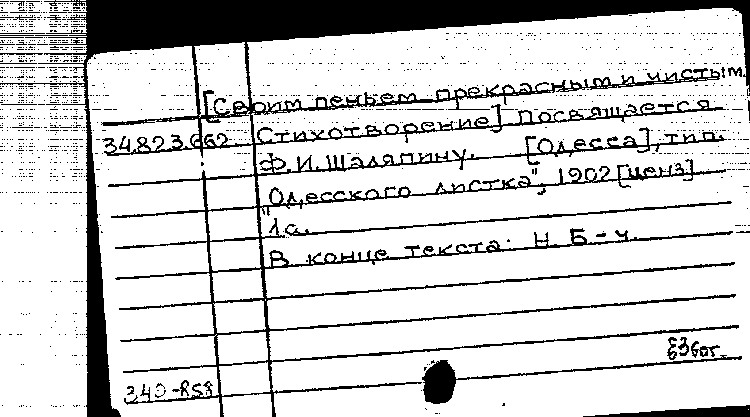 [Своим пеньем прекрасным и чистым
34.823.662 Стихотворение] Посвящается
Ф.И.Шаляпину. [Одесса], тип.
"Одесского листка", 1902 [ценз]
1с.
В конце текста: Н. Б-ч.
340-R58